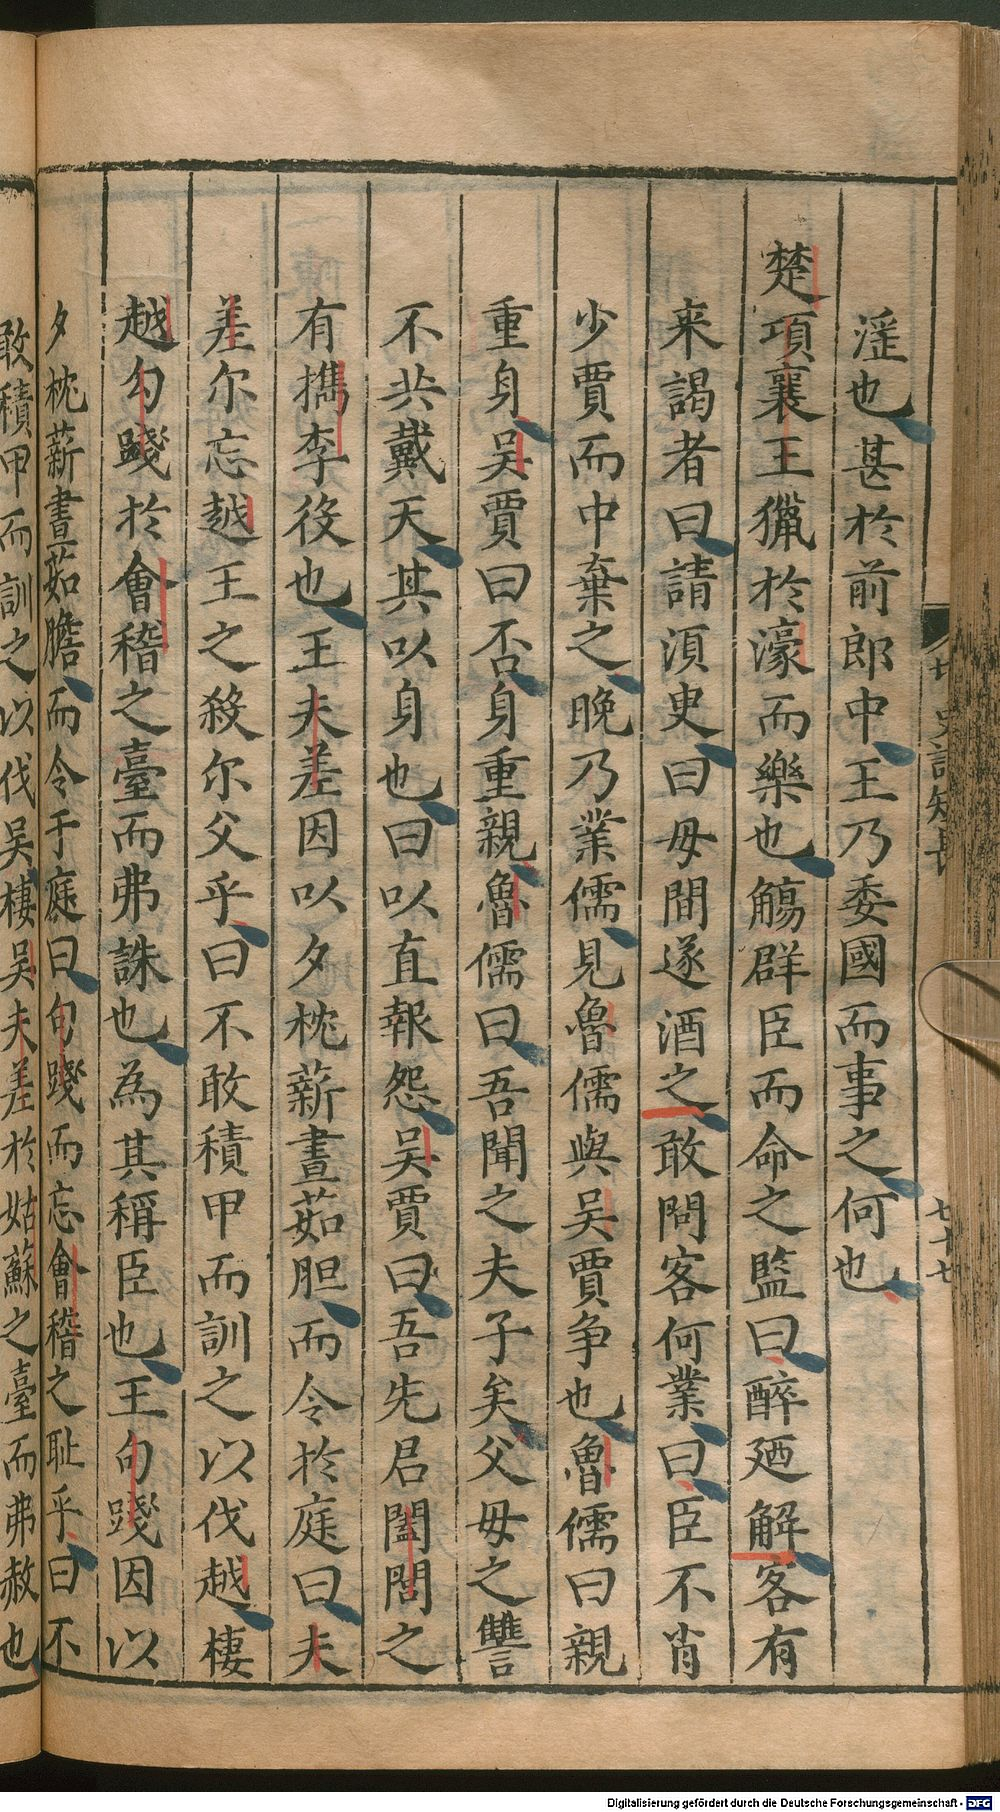 淫也甚於前郎中王乃委國而事之何也
楚項襄王獵於濠而樂也觴群臣而命之監曰醉廼解客有
来謁者曰請湏史曰毋間遂酒之敢問客何業曰臣不肖
少賈而中棄之晚乃業儒見魯儒與吴賈争也魯儒曰親
重身吴賈曰否身重親魯儒曰吾聞之夫子矣父母之讐
不共戴天其以身也曰以直報怨吴賈曰吾先君闔閭之
有携李役也王夫差因以夕枕薪晝茹胆而令於庭曰夫
差尔忘越王之殺尔父乎曰不敢積甲而訓之以伐越棲
越勾踐於會稽之臺而弗誅也為其稱臣也王句踐因以
夕枕薪晝茹膽而令于庭曰句踐而忘會稽之耻乎曰不
敢積甲而訓之以伐吴棲吴夫差於姑蘇之臺而弗赦也
史記短長
七十七
Digitalisierung gefördert durch die Deutsche Forschungsgemeinschaft - DFG